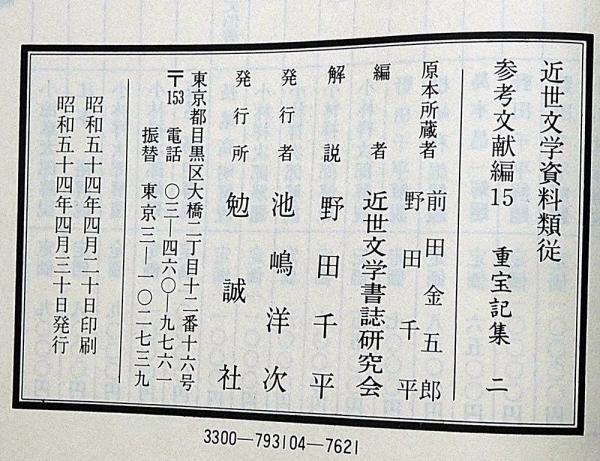 近世文学資料類従
参考文献編15 重宝記集 二
原本所蔵者 前田金五郎
野田千平
編者 近世文学書誌研究会
解説 野田千平
発行者 池嶋洋次
発行所 勉誠社
東京都目黒区大橋二丁目十二番十六号
〒153 電話 〇三―四六〇―九七六一
振替 東京三―一〇二七三九
昭和五十四年四月二十日印刷
昭和五十四年四月三十日発行
3300―793104―7621